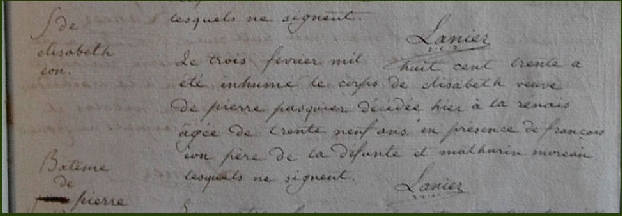 lesquels ne signent.
Lanier
S de
elisabeth
son.
Le trois fevrier mil huit cent trente a
été inhumé le corps de elisabeth veuve
de pierre pasquier décédée hier à la renais
âgée de trente neuf ans en presence de francois
son père de la défunte et mathurin moreau
lesquels ne signent.
Lanier
Bateme
de
pierre